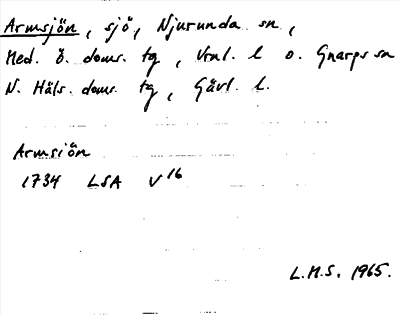 Armsjön, sjö, Njurunda sn,
Med. ö. doms. tg, Vnl. l o. Gnarps sn
N. Häls. doms. tg, Gävl. l.
Armsiön
1734 LSA V16
L.H.S. 1965.